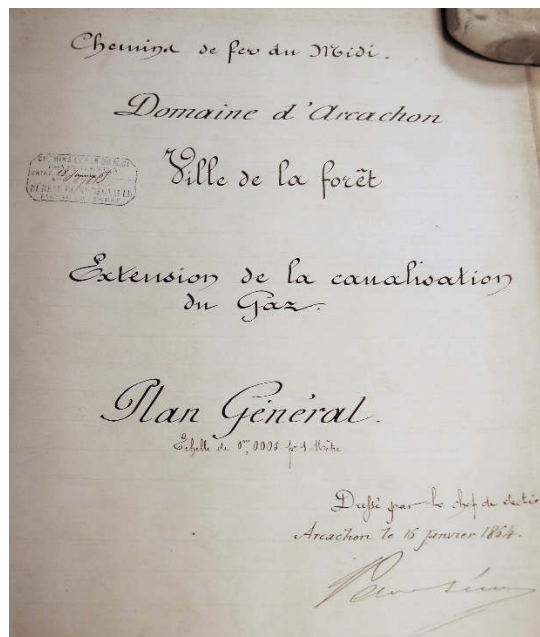 Chemins de fer du Midi.
Domaine d'Arcachon
Ville de la forêt
CHEMINS DE FER DU MIDI
CONSTRUCTION
Extension de la canalisation
du Gaz.
Plan Général.
Echelle de 0m,0005 pr 1 Mètre
Dressé par le chef de section
Arcachon le 15 Janvier 1864.